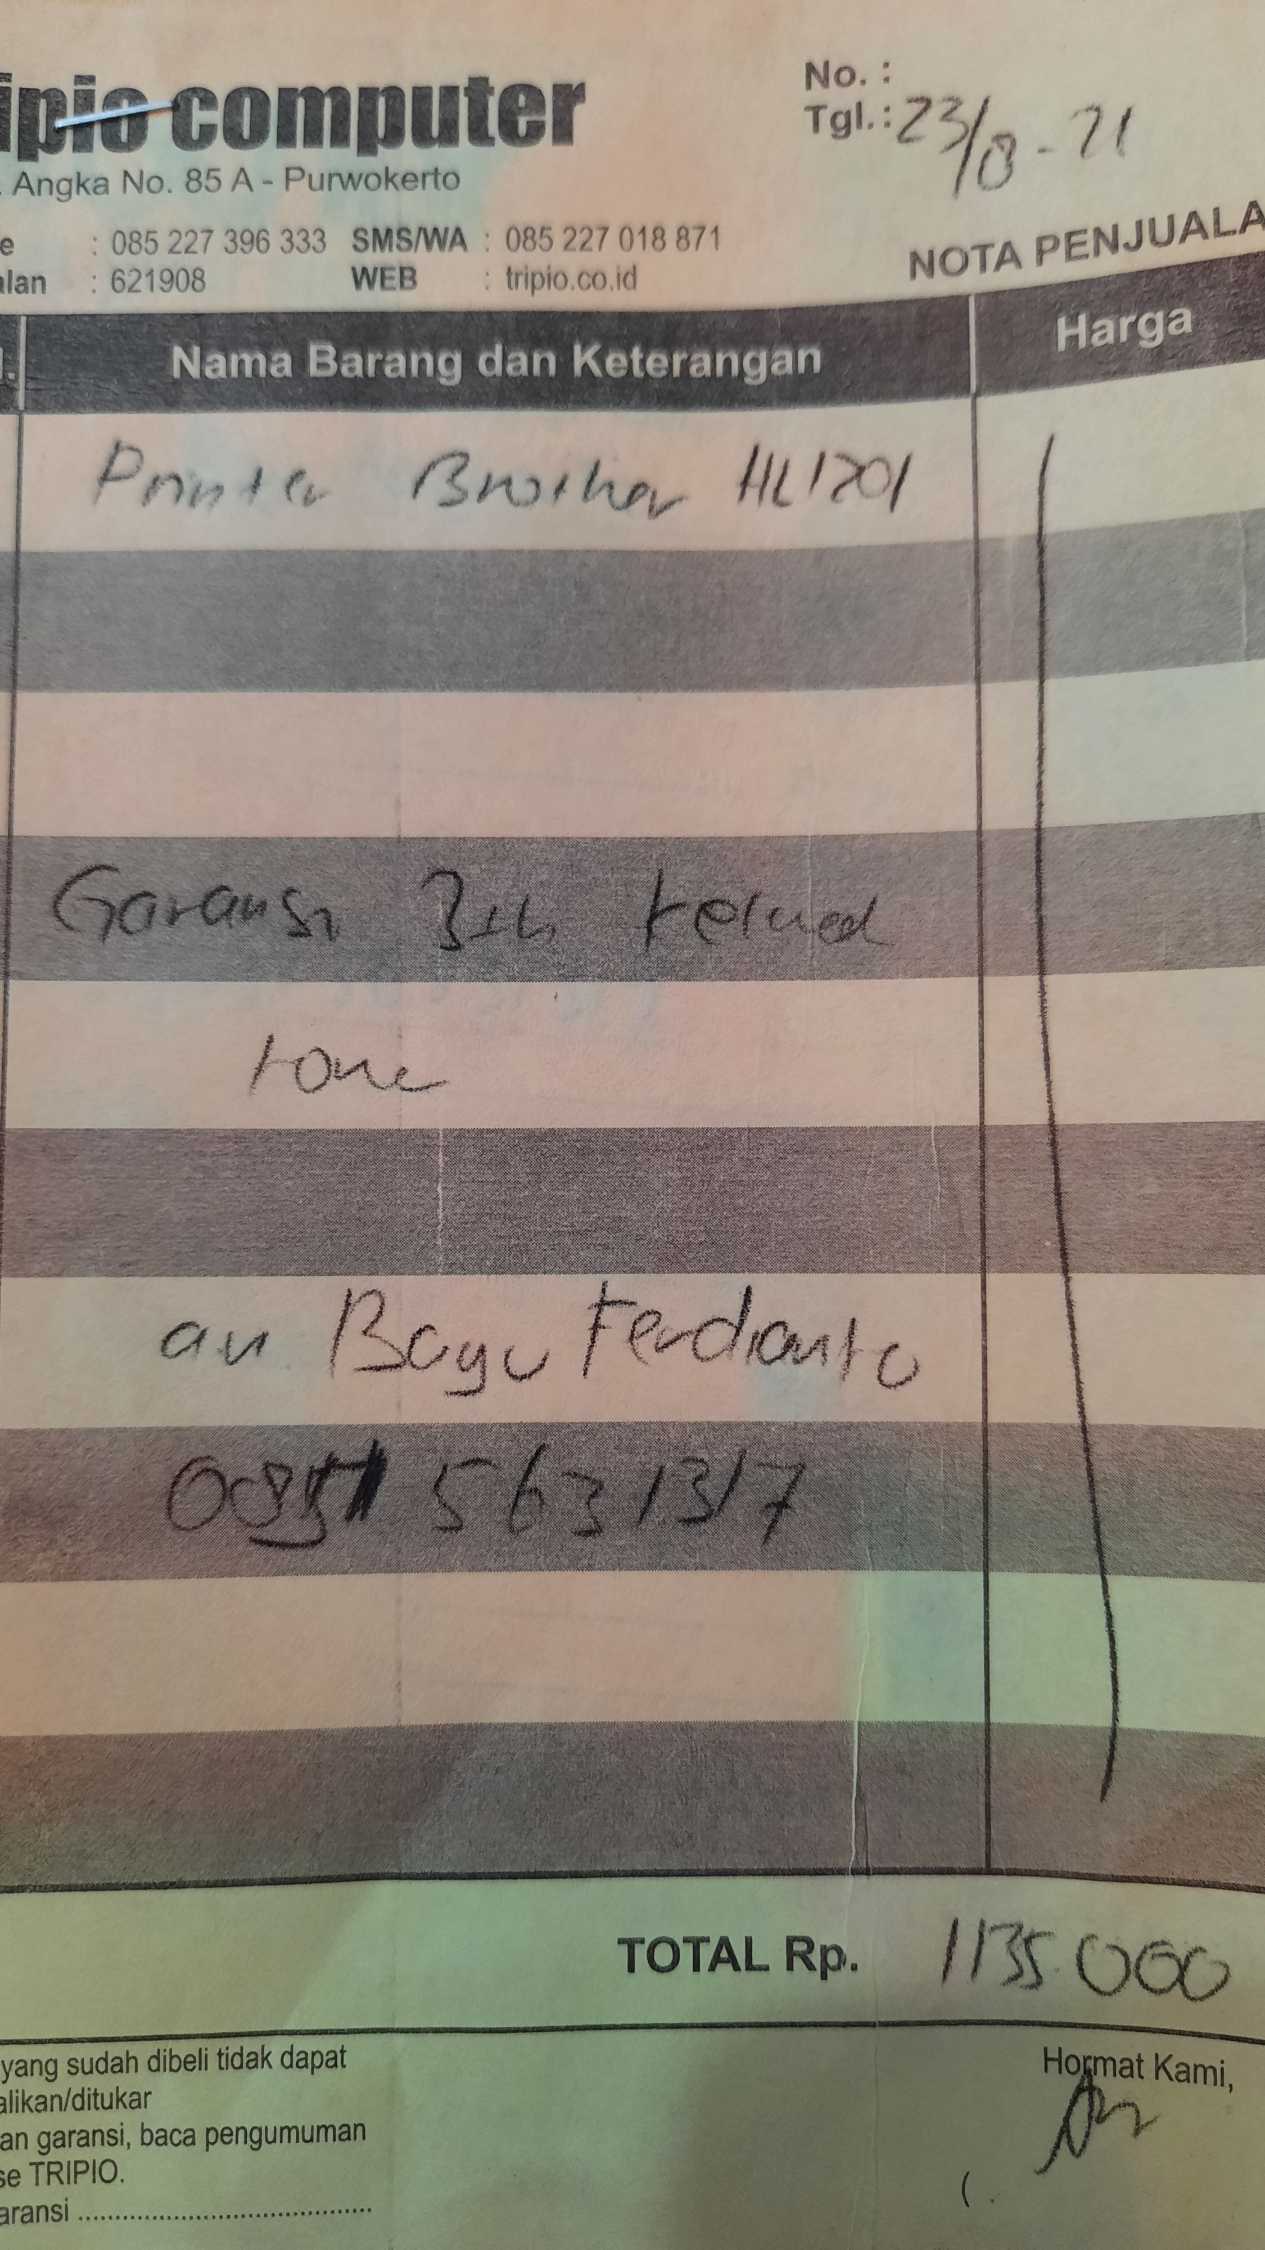 ipio computer
. Angka No. 85 A - Purwokerto
e : 085 227 396 333 SMS/WA : 085 227 018 871
alan : 621908 WEB : tripio.co.id
No. :
Tgl.: 23/8-21
NOTA PENJUALA
Nama Barang dan Keterangan Harga
Printer Brother HL1201
Garansi 3th kecuali
tone
an Bayu Ferdianto
5631317
TOTAL Rp. 1135.000
yang sudah dibeli tidak dapat
alikan/ditukar
an garansi, baca pengumuman
se TRIPIO.
aransi ..........................................
Hormat Kami,
( .